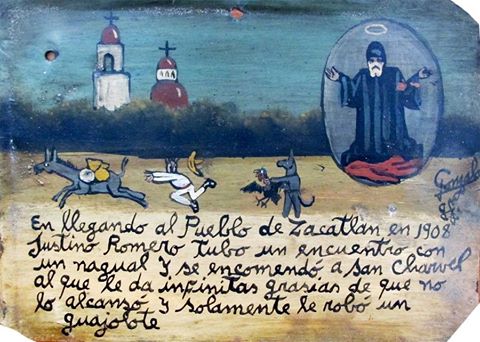 En llegando al Pueblo de Zacatlán en 1908
Justino Romero tubo un encuentro con
un nagual y se encomendó, a San Charvel
al que le da infinitas grasias de que no
lo alcanzó y solamente le robó un
guajolote